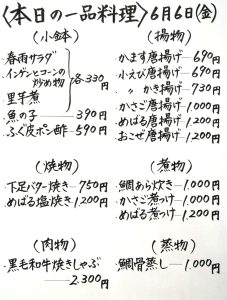 〈本日の一品料理〉6月6日(金)
(小鉢)
・春雨サラダ
・インゲンとコーンの炒め物
・里芋煮
各330円
・魚の子―390円
・ふぐ皮ポン酢―590円
(揚物)
・かます唐揚げ―690円
・小えび唐揚げ―690円
・〃 かき揚げ―730円
・かさご唐揚げ―1.000円
・めばる唐揚げ―1.200円
・おこぜ唐揚げ―1.200円
(焼物)
・下足バター焼き―750円
・めばる塩焼き―1.200円
(煮物)
・鯛あら炊き―1.000円
・かさご煮つけ―1.000円
・めばる煮つけ―1.200円
(肉物)
・黒毛和牛焼きしゃぶ
―2.300円
(蒸物)
・鯛骨蒸し―1.000円